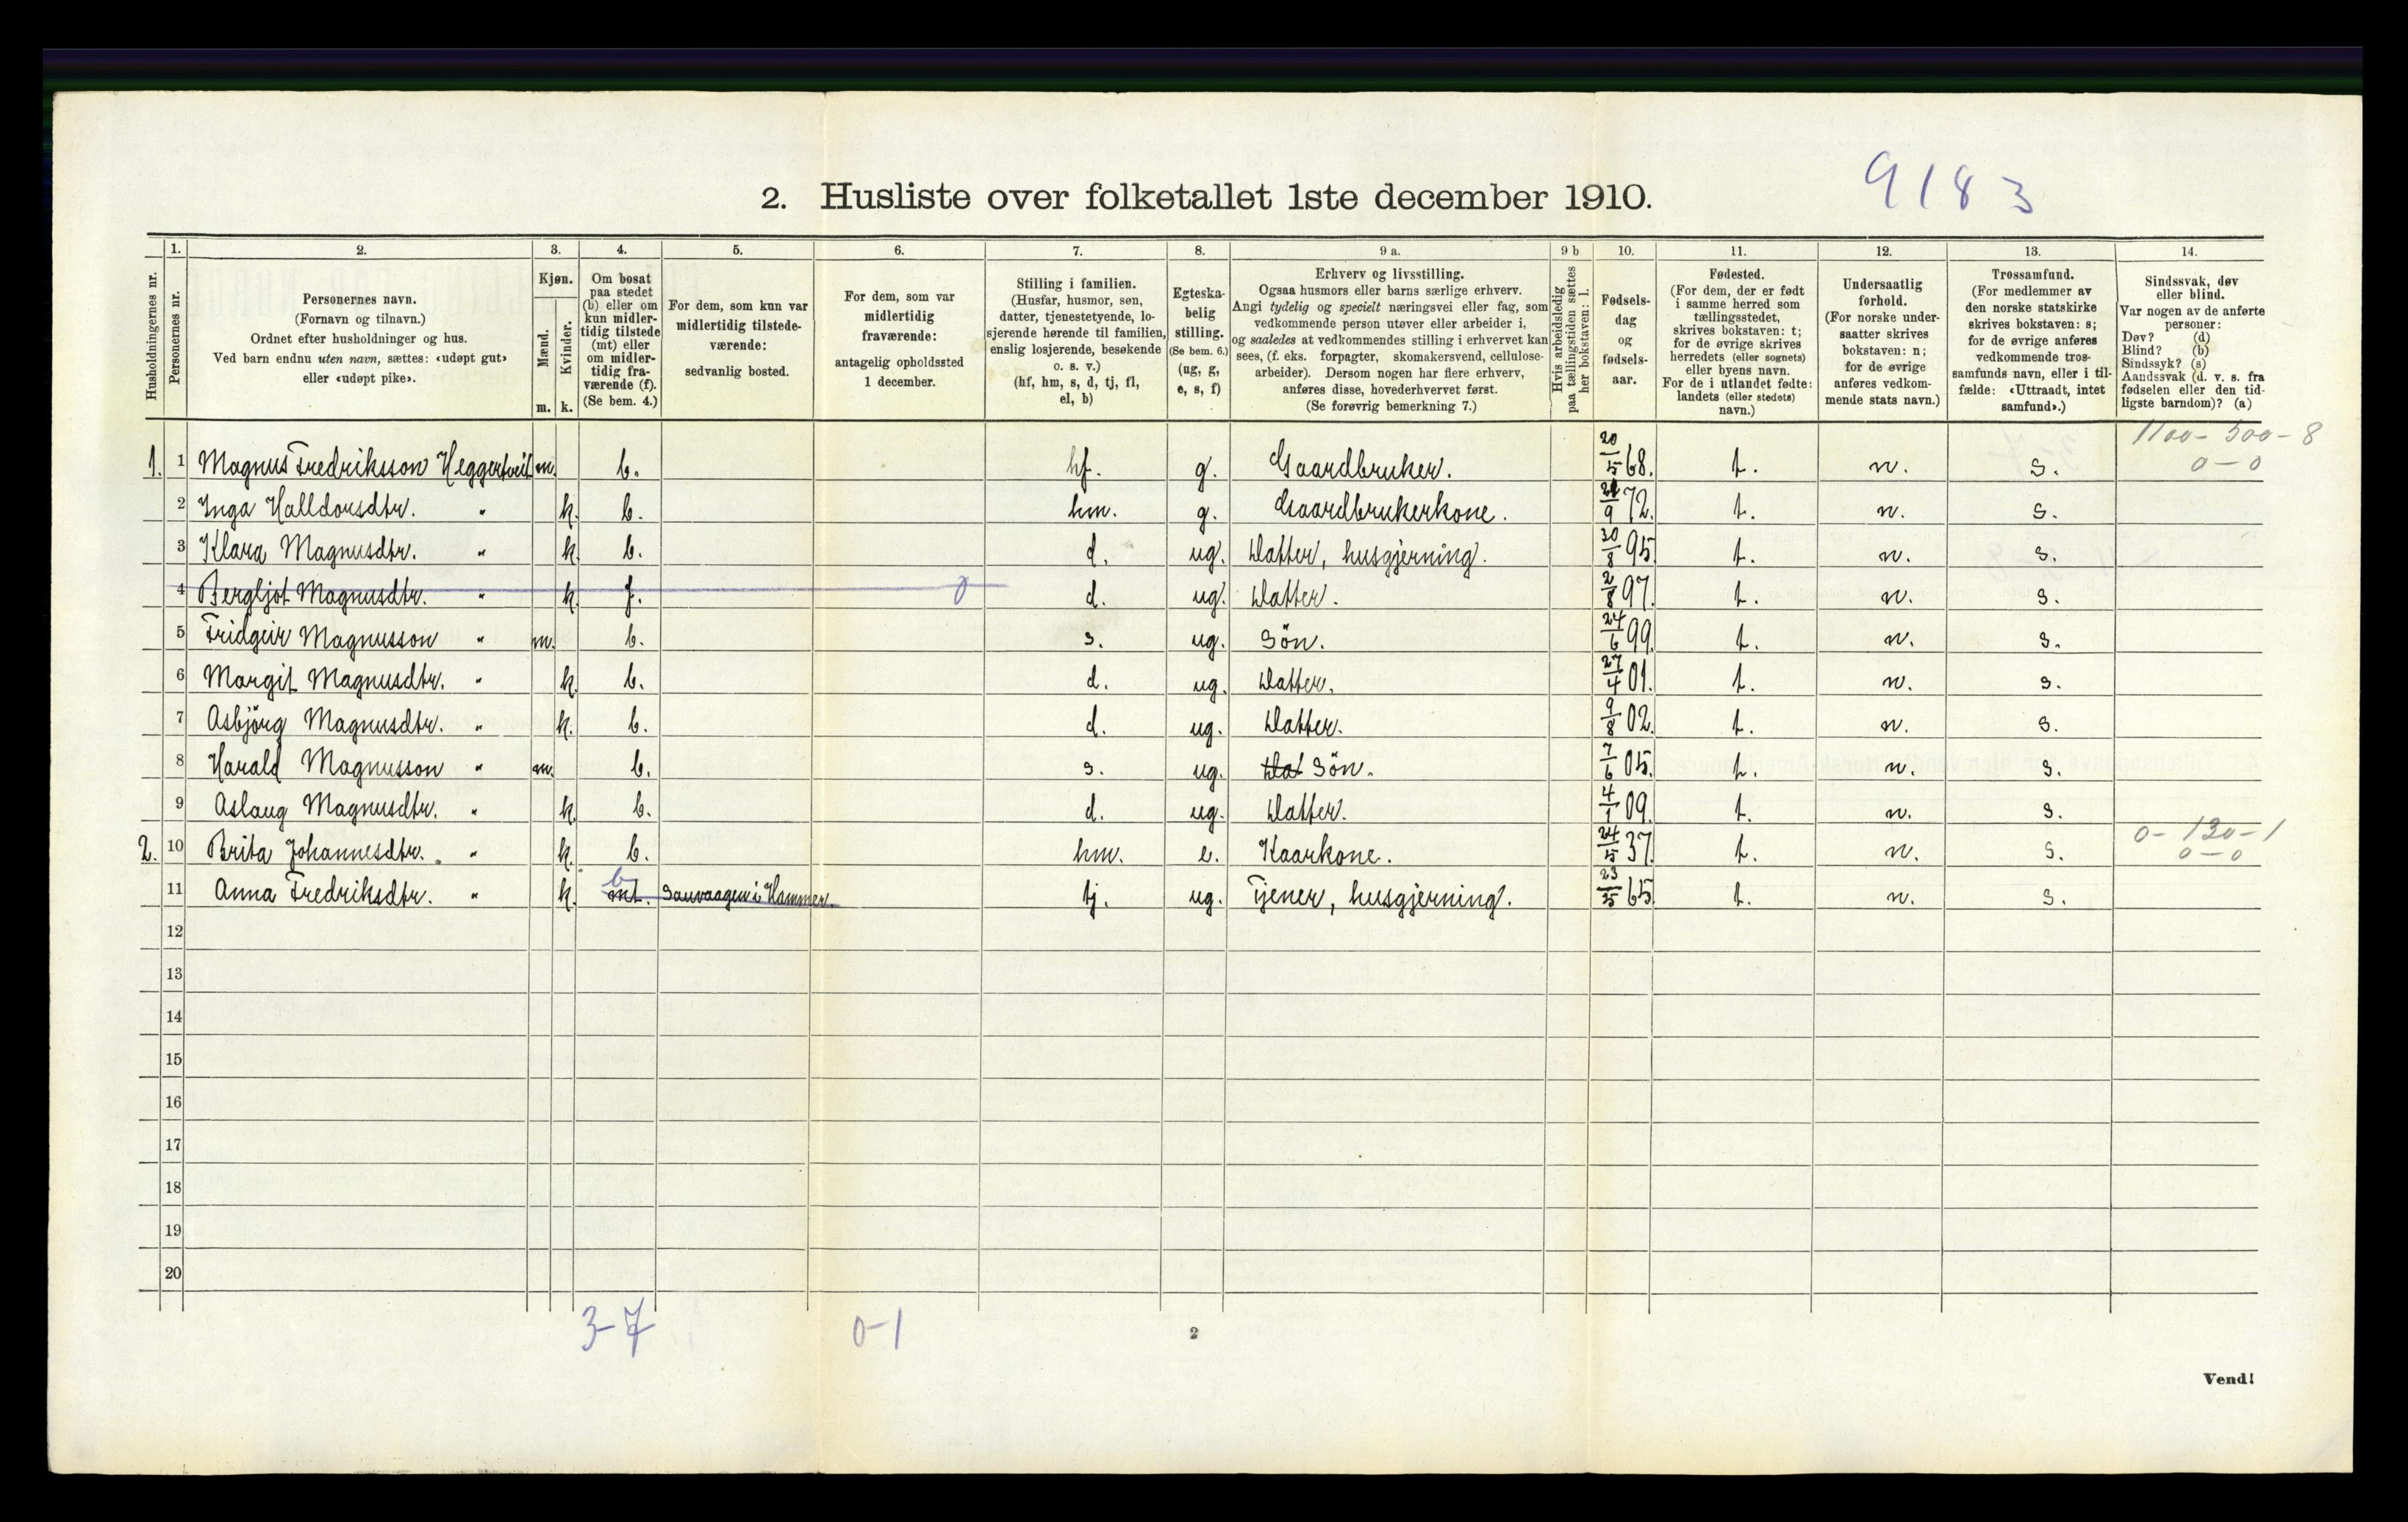 9183
2. Husliste over folketallet 1ste december 1910.
Husholdningernes nr.
1.
Personernes nr.
2.
Personernes navn.
(Fornavn og tilnavn.)
Ordnet efter husholdninger og hus.
Ved barn endnu uten navn, sættes: «udøpt gut»
eller «udøpt pike».
3.
Kjøn.
Mænd.
Kvinder.
m. k.
4.
Om bosat
paa stedet
(b) eller om
kun midler-
tidig tilstede
(mt) eller
om midler-
tidig fra-
værende (f).
(Se bem. 4.)
5.
For dem, som kun var
midlertidig tilstede-
værende:
sedvanlig bosted.
6.
For dem, som var
midlertidig
fraværende:
antagelig opholdssted
1 december.
7.
Stilling i familien.
(Husfar, husmor, søn,
datter, tjenestetyende, lo-
sjerende hørende til familien,
enslig losjerende, besøkende
o. s. v.)
(hf, hm, s, d, tj, fl,
el, b)
8.
Egteska-
belig
stilling.
(Se bem. 6.)
(ug, g,
e, s, f)
9 a.
Erhverv og livsstilling.
Ogsaa husmors eller barns særlige erhverv.
Angi tydelig og specielt næringsvei eller fag, som
vedkommende person utøver eller arbeider i,
og saaledes at vedkommendes stilling i erhvervet kan
sees, (f. eks. forpagter, skomakersvend, cellulose-
arbeider). Dersom nogen har flere erhverv,
anføres disse, hovederhvervet først.
(Se forøvrig bemerkning 7.)
9 b
Hvis arbeidsledig
paa tællingstiden sættes
her bokstaven: l.
10.
Fødsels-
dag
og
fødsels-
aar.
11.
Fødested.
(For dem, der er født
i samme herred som
tællingsstedet,
skrives bokstaven: t;
for de øvrige skrives
herredets (eller sognets)
eller byens navn.
For de i utlandet fødte:
landets (eller stedets)
navn.)
12.
Undersaatlig
forhold.
(For norske under-
saatter skrives
bokstaven: n;
for de øvrige
anføres vedkom-
mende stats navn.)
13.
Trossamfund.
(For medlemmer av
den norske statskirke
skrives bokstaven: s;
for de øvrige anføres
vedkommende tros-
samfunds navn, eller i til-
fælde: «Uttraadt, intet
samfund».)
14.
Sindssvak, døv
eller blind.
Var nogen av de anførte
personer:
Døv? (d)
Blind? (b)
Sindssyk? (s)
Aandssvak (d. v. s. fra
fødselen eller den tid-
ligste barndom)? (a)
1. 1 Magnus Fredriksson Heggertveit m. b. hf. g. Gaardbruker. 20/5 68. t. n. s. 1100-500-8 0-0
2 Inga Halldorsdtr. " k. b. hm. g. Gaardbrukerkone. 9 72. t. n. s.
3 Klara Magnusdtr. " k. b. d. ug. Datter, husgjerning. 30/8 95 t. n. s.
4 Bergljot Magnusdtr. " k. f. 0 d. ug. Datter. 2/8 97. t. n. s.
5 Fridgeir Magnusson " m. b. s. ug. Sön. 24/6 99. t. n. s.
6 Margit Magnusdtr. " k. b. d. ug. Datter. 27/4 01. t. n. s.
7 Asbjörg Magnusdtr. " k. b. d. ug. Datter. 9/8 02. t. n. s.
8 Harald Magnusson " m. b. s. ug. Dat Sön. 7/6 05. t. n. s.
9 Aslaug Magnusdtr. " k. b. d. ug. Datter. 4/1 09. t. n. s.
2. 10 Brita Johannesdtr. " k. b. hm. e. Kaarkone. 24/5 37. t. n. s. 0-130-1 0-0
11 Anna Fredriksdtr. " k. b mt. Sauvaagen i Hammer. tj. ug. Tjener, husgjerning. 23/5 65. t. n. s.
12
13
14
15
16
17
18
19
20
3-7 0-1
2
Vend!